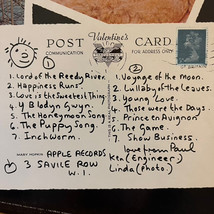 Valentine's
POST CARD
COMMUNICATION
1. Lord of the Reedy River.
2. Happiness Runs.
3. Love is the Sweetest Thing.
4. Y Blodyn Gwyn.
5. The Honeymoon Song
6. The Puppy Song.
7. Inchworm.
②
1. Voyage of the moon.
2. Lullaby of the Leaves.
3. Young Love.
4. Those were the Days.
5. Prince en Avignon
6. The Game.
7. Show Business
love from Paul
Ken (Engineer)
Linda (photo.)
APPLE RECORDS
3 SAVILE ROW
W.1.